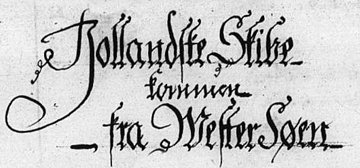 Hollandske Skibe
kommen
fra Wester Søen